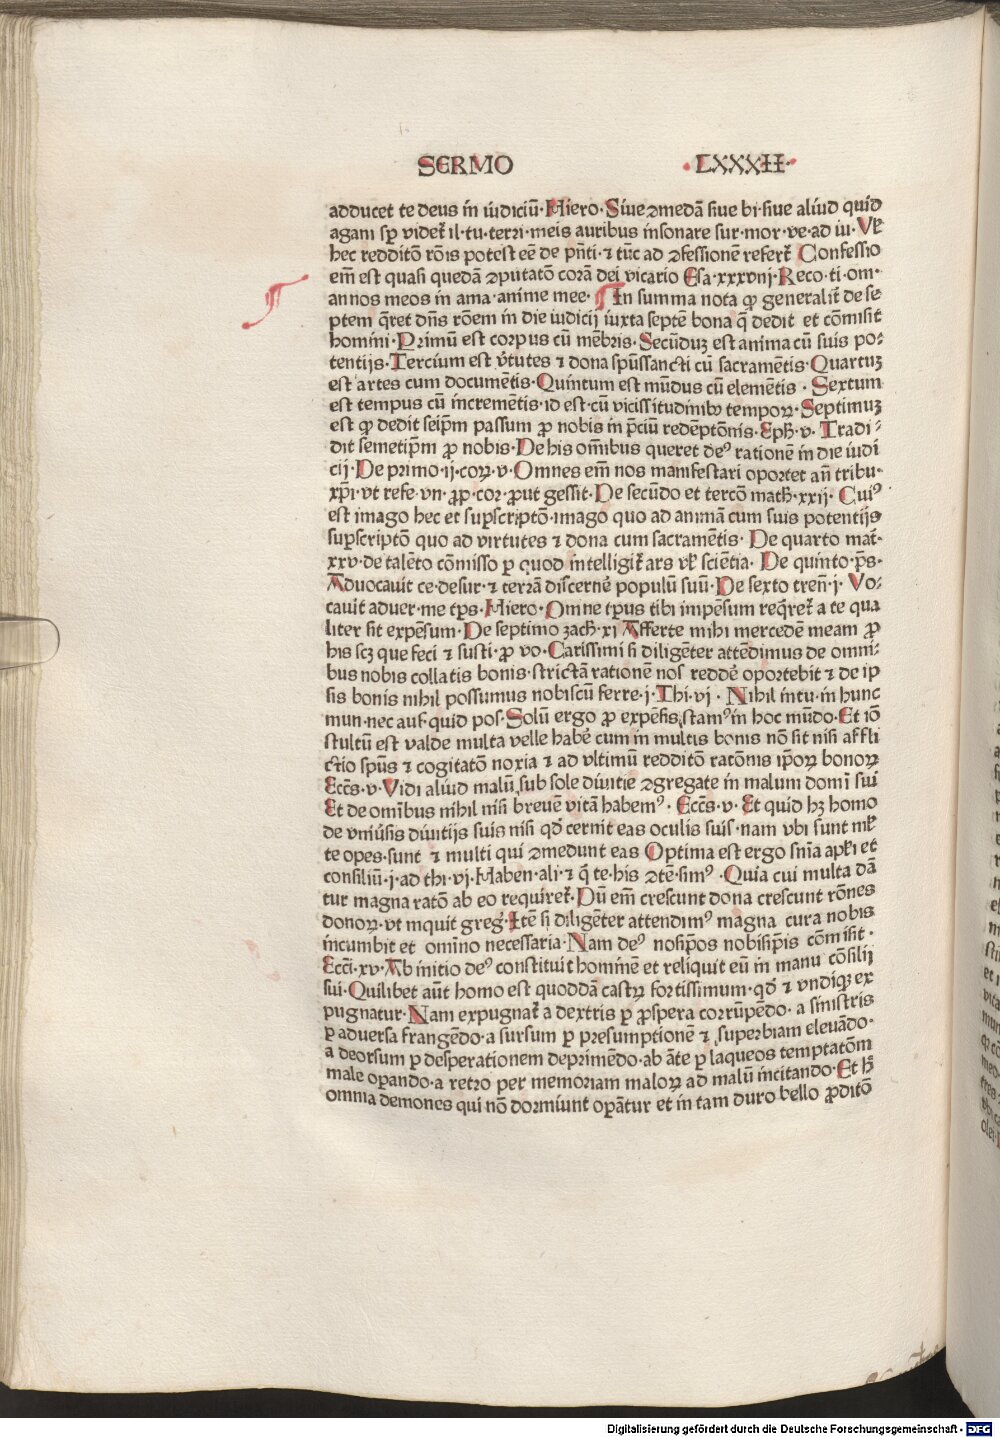 SERMO LXXXII·
adducet te deus in iudiciū·Hiero·Siue ꝯmedā siue bi·siue aliud quid
agam sꝑ videt᷑ il·tu·terri·meis auribus insonare sur·mor·ve·ad iu·Vł
hec redditō rōis potest eē de pn̄ti·⁊ tūc ad ꝯfessionē refert᷑ Confessio
em̄ est quasi quedā ꝯputatō corā dei vicario Esa·xxxvııj·Reco·ti·om·
annos meos in ama·anime mee· In summa nota ꝙ generalit̄ de se
ptem q̄ret dn̄s rōem in die iudicij iuxta septē bona q̄ dedit et cōmisit
homini·Primū est corpus cū mēbris·Secūduꝫ est anima cū suis po⸗
tentijs·Tercium est v̄tutes ⁊ dona spūssancti cū sacramētis·Quartuꝫ
est artes cum documētis·Quintum est mūdus cū elemētis·Sextum
est tempus cū incremētis·id est·cū vicissitudinibꝰ tempoꝝ·Septimuꝫ
est ꝙ dedit seip̄m passum ꝓ nobis in p̄ciū redēptōnis·Eph̄·v·Tradi⸗
dit semetip̄m ꝓ nobis·De his om̄ibus queret deꝰ rationē in die iudi
cij·De primo·ij·coꝝ·v·Omnes em̄ nos manifestari oportet an̄ tribu·
xp̄i·vt refe·vn·ꝓp·cor·ꝓut gessit·De secūdo et tercō math̄·xxij·Cuiꝰ
est imago hec et suꝑscriptō·imago quo ad animā cum suis potentijs
suꝑscriptō quo ad virtutes ⁊ dona cum sacramētis·De quarto mat̄·
xxv·de talēto cōmisso ꝑ quod intelligit᷑ ars vł sciētia·De quinto·ps̄·
Aduocauit ce·desur·⁊ terrā discernē populū suū·De sexto tren̄·j·Vo⸗
cauit aduer·me tp̄s·Hiero·Omne tꝑus tibi impēsum req̄ret᷑ a te qua
liter sit expēsum·De septimo zach̄·xj Afferte mihi mercedē meam ꝓ
his scꝫ que feci ⁊ susti·ꝓ vo·Carissimi si diligēter attēdimus de omni⸗
bus nobis collatis bonis·strictā rationē nos redde᷑ oportebit ⁊ de ip
sis bonis nihil possumus nobiscū ferre·j·Thi·vj·Nihil intu·in hunc
mun·nec auf·quid pos·Solū ergo ꝓ expēsis stamꝰ in hoc mūdo·Et iō
stultū est valde multa velle habe᷑ cum in multis bonis nō sit nisi affli
ctio spūs ⁊ cogitatō noxia ⁊ ad vltimū redditō ratōnis ip̄oꝝ bonoꝝ
Eccēs·v·Vidi aliud malū sub sole diuitie ꝯgregate in malum domı̄ sui
Et de om̄ibus nihil nisi breuē vitā habemꝰ·Eccēs·v·Et quid hꝫ homo
de vniu᷑sis diuitijs suis nisi qđ cernit eas oculis suis·nam vbi sunt ml᷑
te opes·sunt ⁊ multi qui ꝯmedunt eas Optima est ergo sn̄ia apl̄i et
consiliū·j·ad thi·vj·Haben·ali·⁊ q̄ te·his ꝯtē·simꝰ·Quia cui multa dā
tur magna ratō ab eo requiret᷑·Dū em̄ crescunt dona crescunt rōnes
donoꝝ·vt inquit greg̓·Itē si diligēter attendimꝰ magna cura nobis
incumbit et omīno necessaria·Nam deꝰ nosip̄os nobisip̄is cōmisit·
Ecci·xv·Ab initio deꝰ constituit hominē et reliquit eū in manu cōsilij
sui·Quilibet aūt homo est quoddā castꝝ fortissimum·qđ ⁊ vndiqꝫ ex
pugnatur·Nam expugnat᷑ a dextris ꝑ ꝓspera corrūpēdo·a sinistris
ꝑ aduersa frangēdo·a sursum ꝑ presumptionē ⁊ superbiam eleuādo·
a deorsum ꝑ desperationem deprimēdo·ab āte ꝑ laqueos temptatōm
male oꝑando·a retro per memoriam maloꝝ ad malū incitando·Et h̄
omnia demones qui nō dormiunt oꝑātur et in tam duro bello ꝓditō
Digitalisierung gefördert durch die Deutsche Forschungsgemeinschaft - DFG